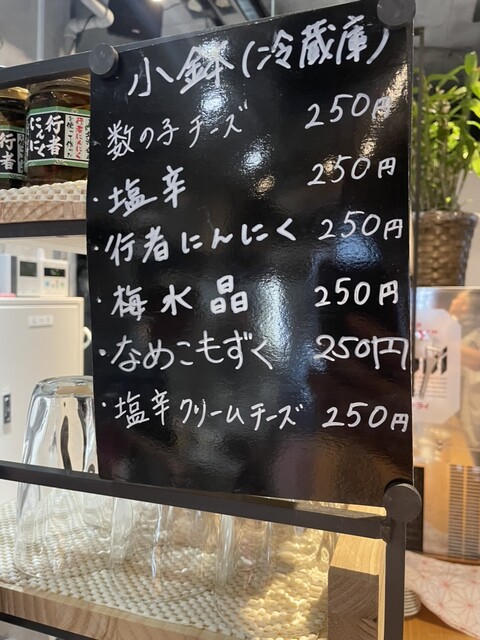 小鉢(冷蔵庫)
数の子チーズ 250円
・塩辛 250円
・行者にんにく 250円
・梅水晶 250円
・なめこもずく 250円
・塩辛クリームチーズ 250円
行者にんにく